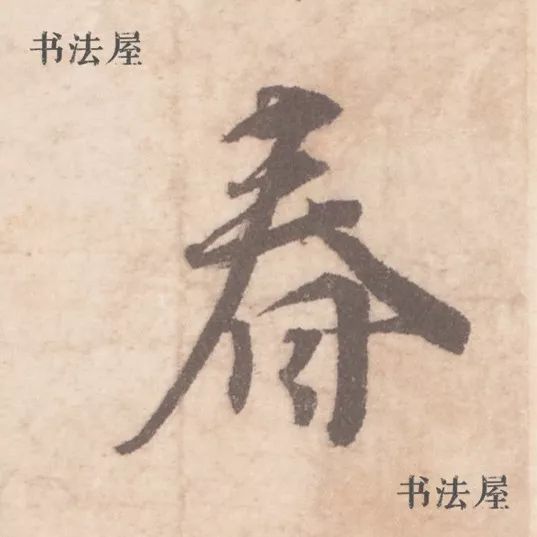 书法屋
春
书法屋